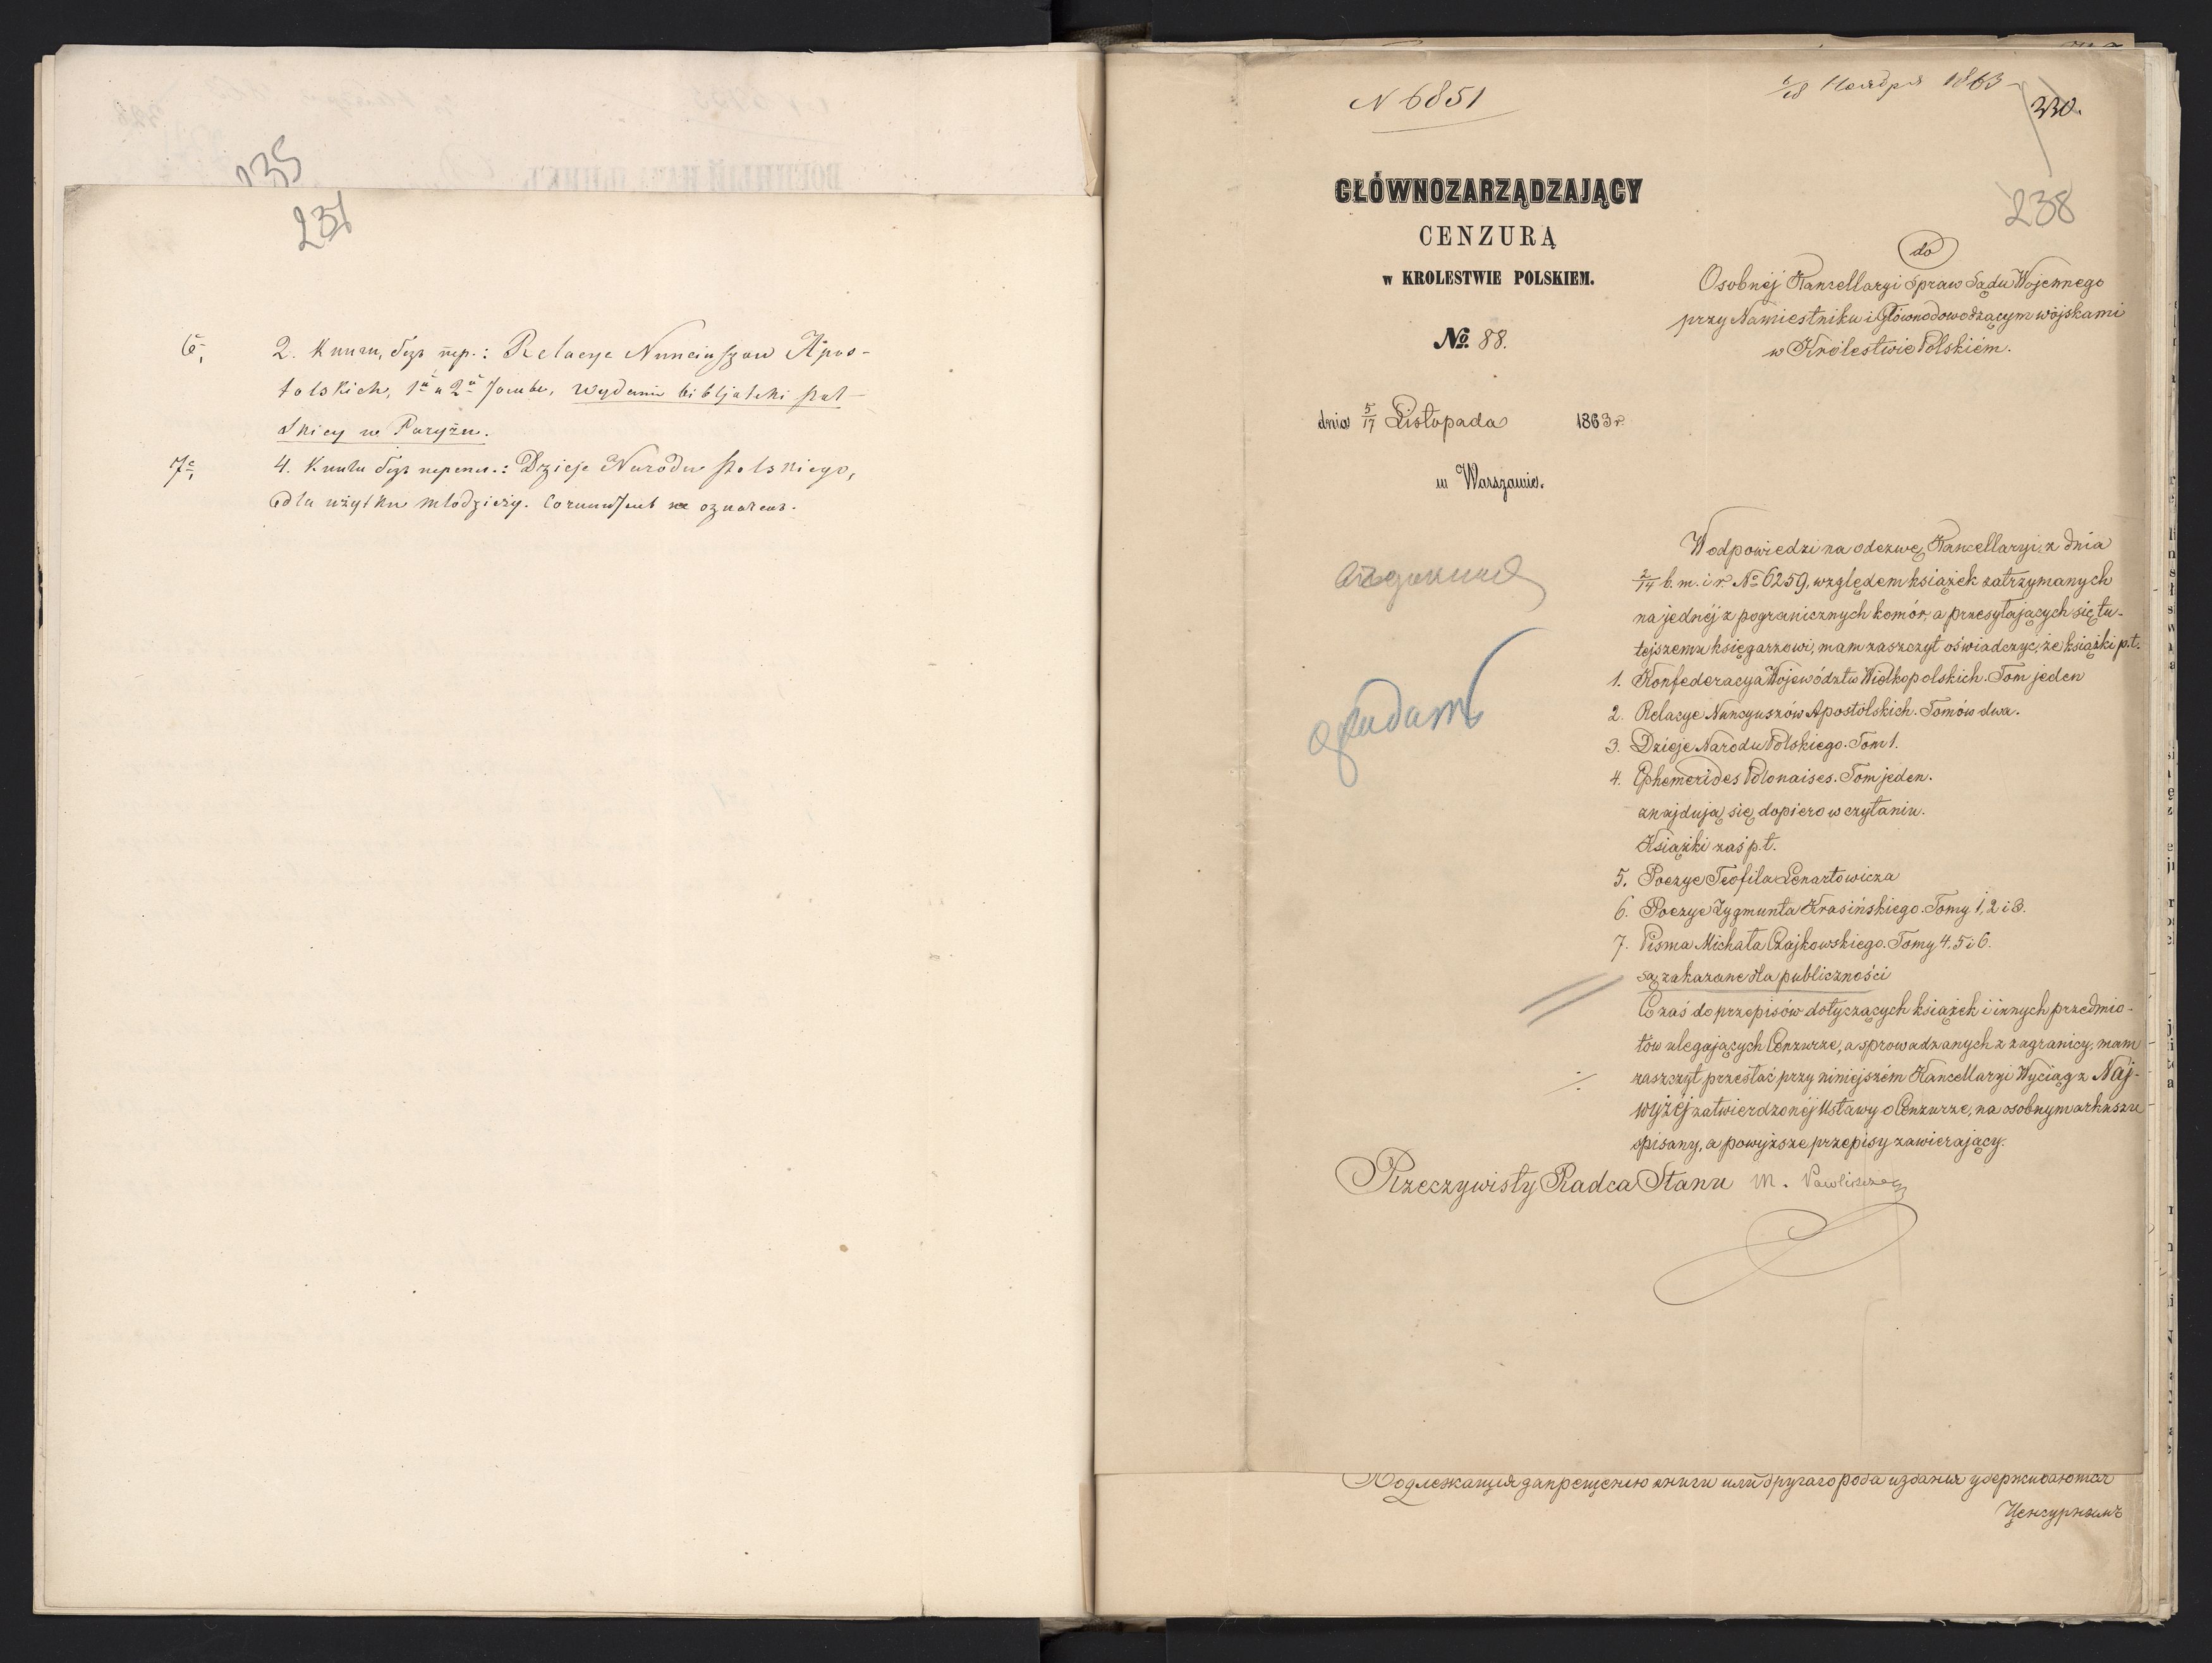 235
237
6е, 2. Книги, безъ пер.: Relacye Nunciuszow Apos-
tolskich, 1й и 2й томы, wydanie bibljoteki pol-
skiej w Paryżu.
7е, 4. Книги безъ переп.: Dzieje Narodu Polskiego,
dla użytku młodzieży.
N 6851
6/18 Ноября 1863
230.
238
GŁÓWNOZARZĄDZAJĄCY
CENZURĄ
w KROLESTWIE POLSKIEM.
No. 88.
dnia 5/17 Listopada 1863 r.
w Warszawie.
do
Osobnéj Kancellaryi Spraw Sądu Wojennego
przy Namiestniku i Głównodowodzącym wojskami
w Królestwie Polskiém.
W odpowiedzi na odezwę Kancellaryi, z dnia
2/14 b. m. i r. No 6259, względem książek zatrzymanych
na jednéj z pogranicznych komór, a przesyłających się tu-
tejszemu księgarzowi, mam zaszczyt oświadczyć, że książki p.t.
1. Konfederacya Województw Wielkopolskich. Tom jeden
2. Relacye Nuncyuszów Apostolskich. Tomów dwa.
3. Dzieje Narodu Polskiego. Tom 1.
4. Ephemerides Polonaises. Tom jeden.
znajdują się dopiero w czytaniu.
Książki zaś p.t.
5. Poezye Teofila Lenartowicza
6. Poezye Zygmunta Krasińskiego. Tomy 1, 2 i 3.
7. Pisma Michała Czajkowskiego. Tomy 4, 5 i 6.
są zakazane dla publiczności
Co zaś do przepisów dotyczących książek i innych przedmio-
tów ulegających Cenzurze, a sprowadzanych z zagranicy, mam
zaszczyt przesłać przy niniejszém Kancellaryi Wyciąg z Naj-
wyżéj zatwierdzonéj Ustawy o Cenzurze, na osobnym arkuszu
spisany, a powyższe przepisy zawierający.
Rzeczywisty Radca Stanu M. Pawliszczew
Подлежащія запрещенію книги или другаго рода изданія удерживаются
Ценсурнымъ